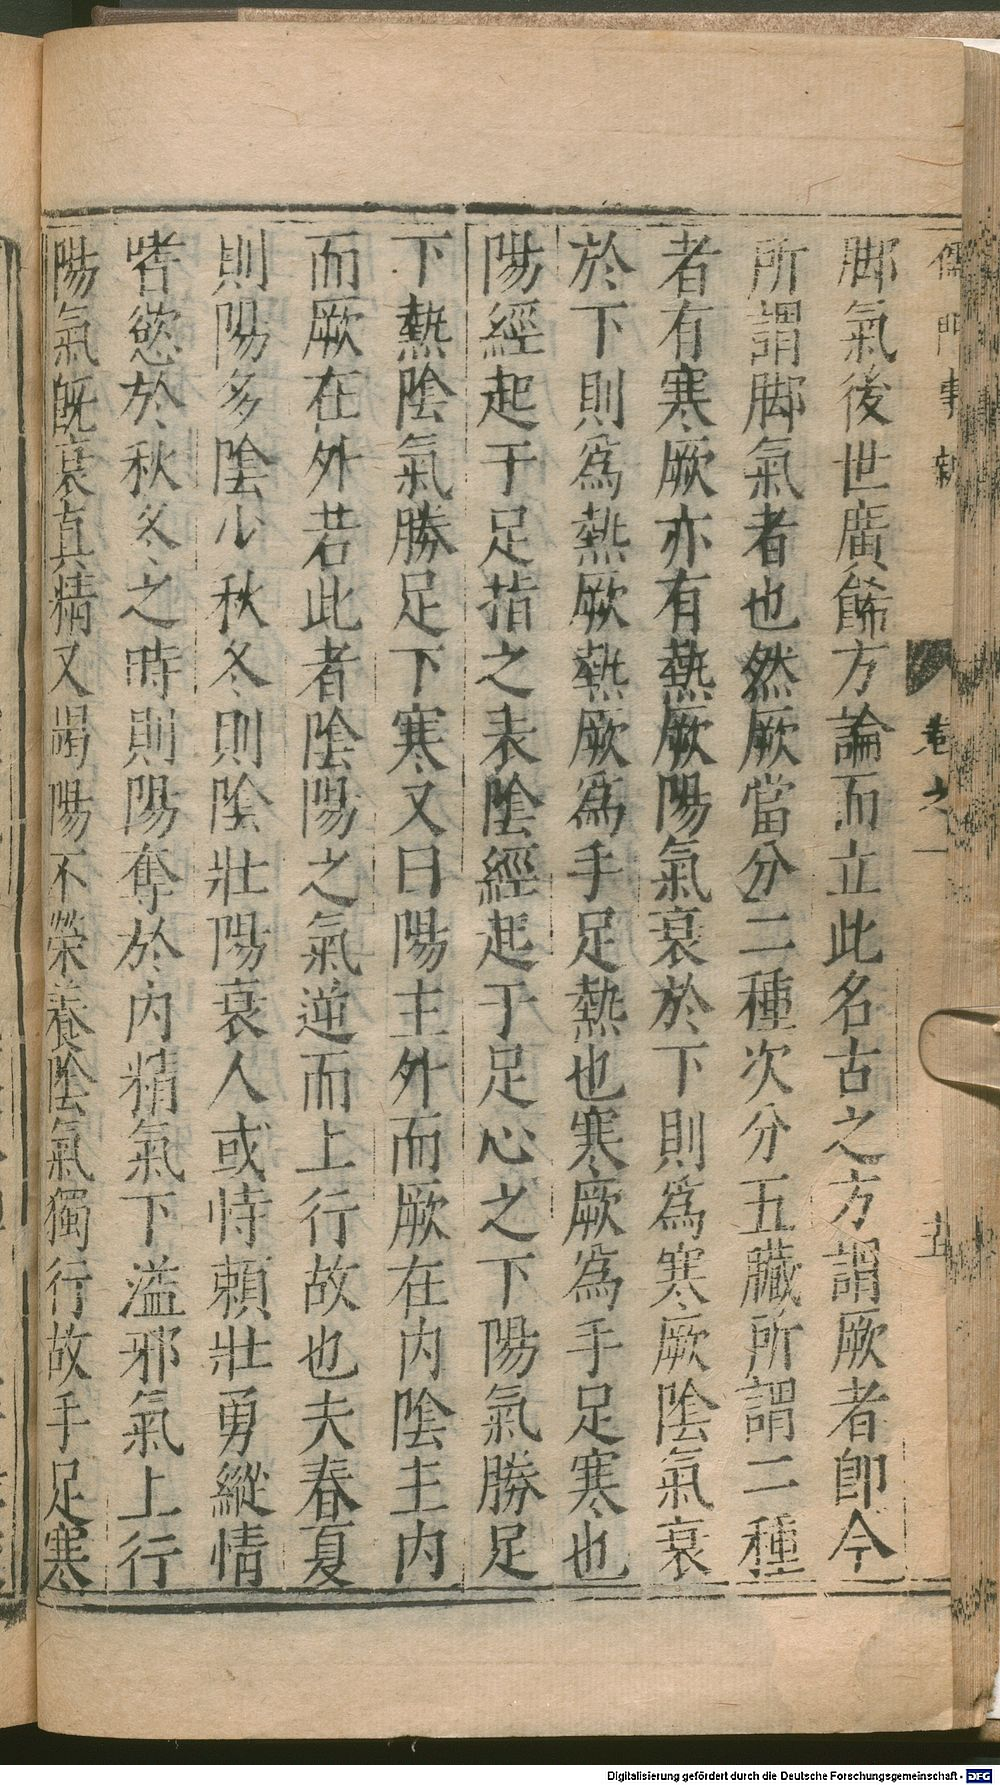 儒門事親 卷之一 五
脚氣後世廣餙方論而立此名古之方謂厥者即今
所謂脚氣者也然厥當分二種次分五臟所謂二種
者有寒厥亦有熱厥陽氣衰於下則爲寒厥陰氣衰
於下則爲熱厥熱厥爲手足熱也寒厥爲手足寒也
陽經起于足指之表陰經起于足心之下陽氣勝足
下熱陰氣勝足下寒又曰陽主外而厥在内陰主内
而厥在外若此者陰陽之氣逆而上行故也夫春夏
則陽多陰少秋冬則陰壯陽衰人或恃賴壯勇縱情
嗜慾於秋冬之時則陽奪於内精氣下溢邪氣上行
陽氣既衰真精又竭陽不榮養陰氣獨行故手足寒
Digitalisierung gefördert durch die Deutsche Forschungsgemeinschaft - DFG